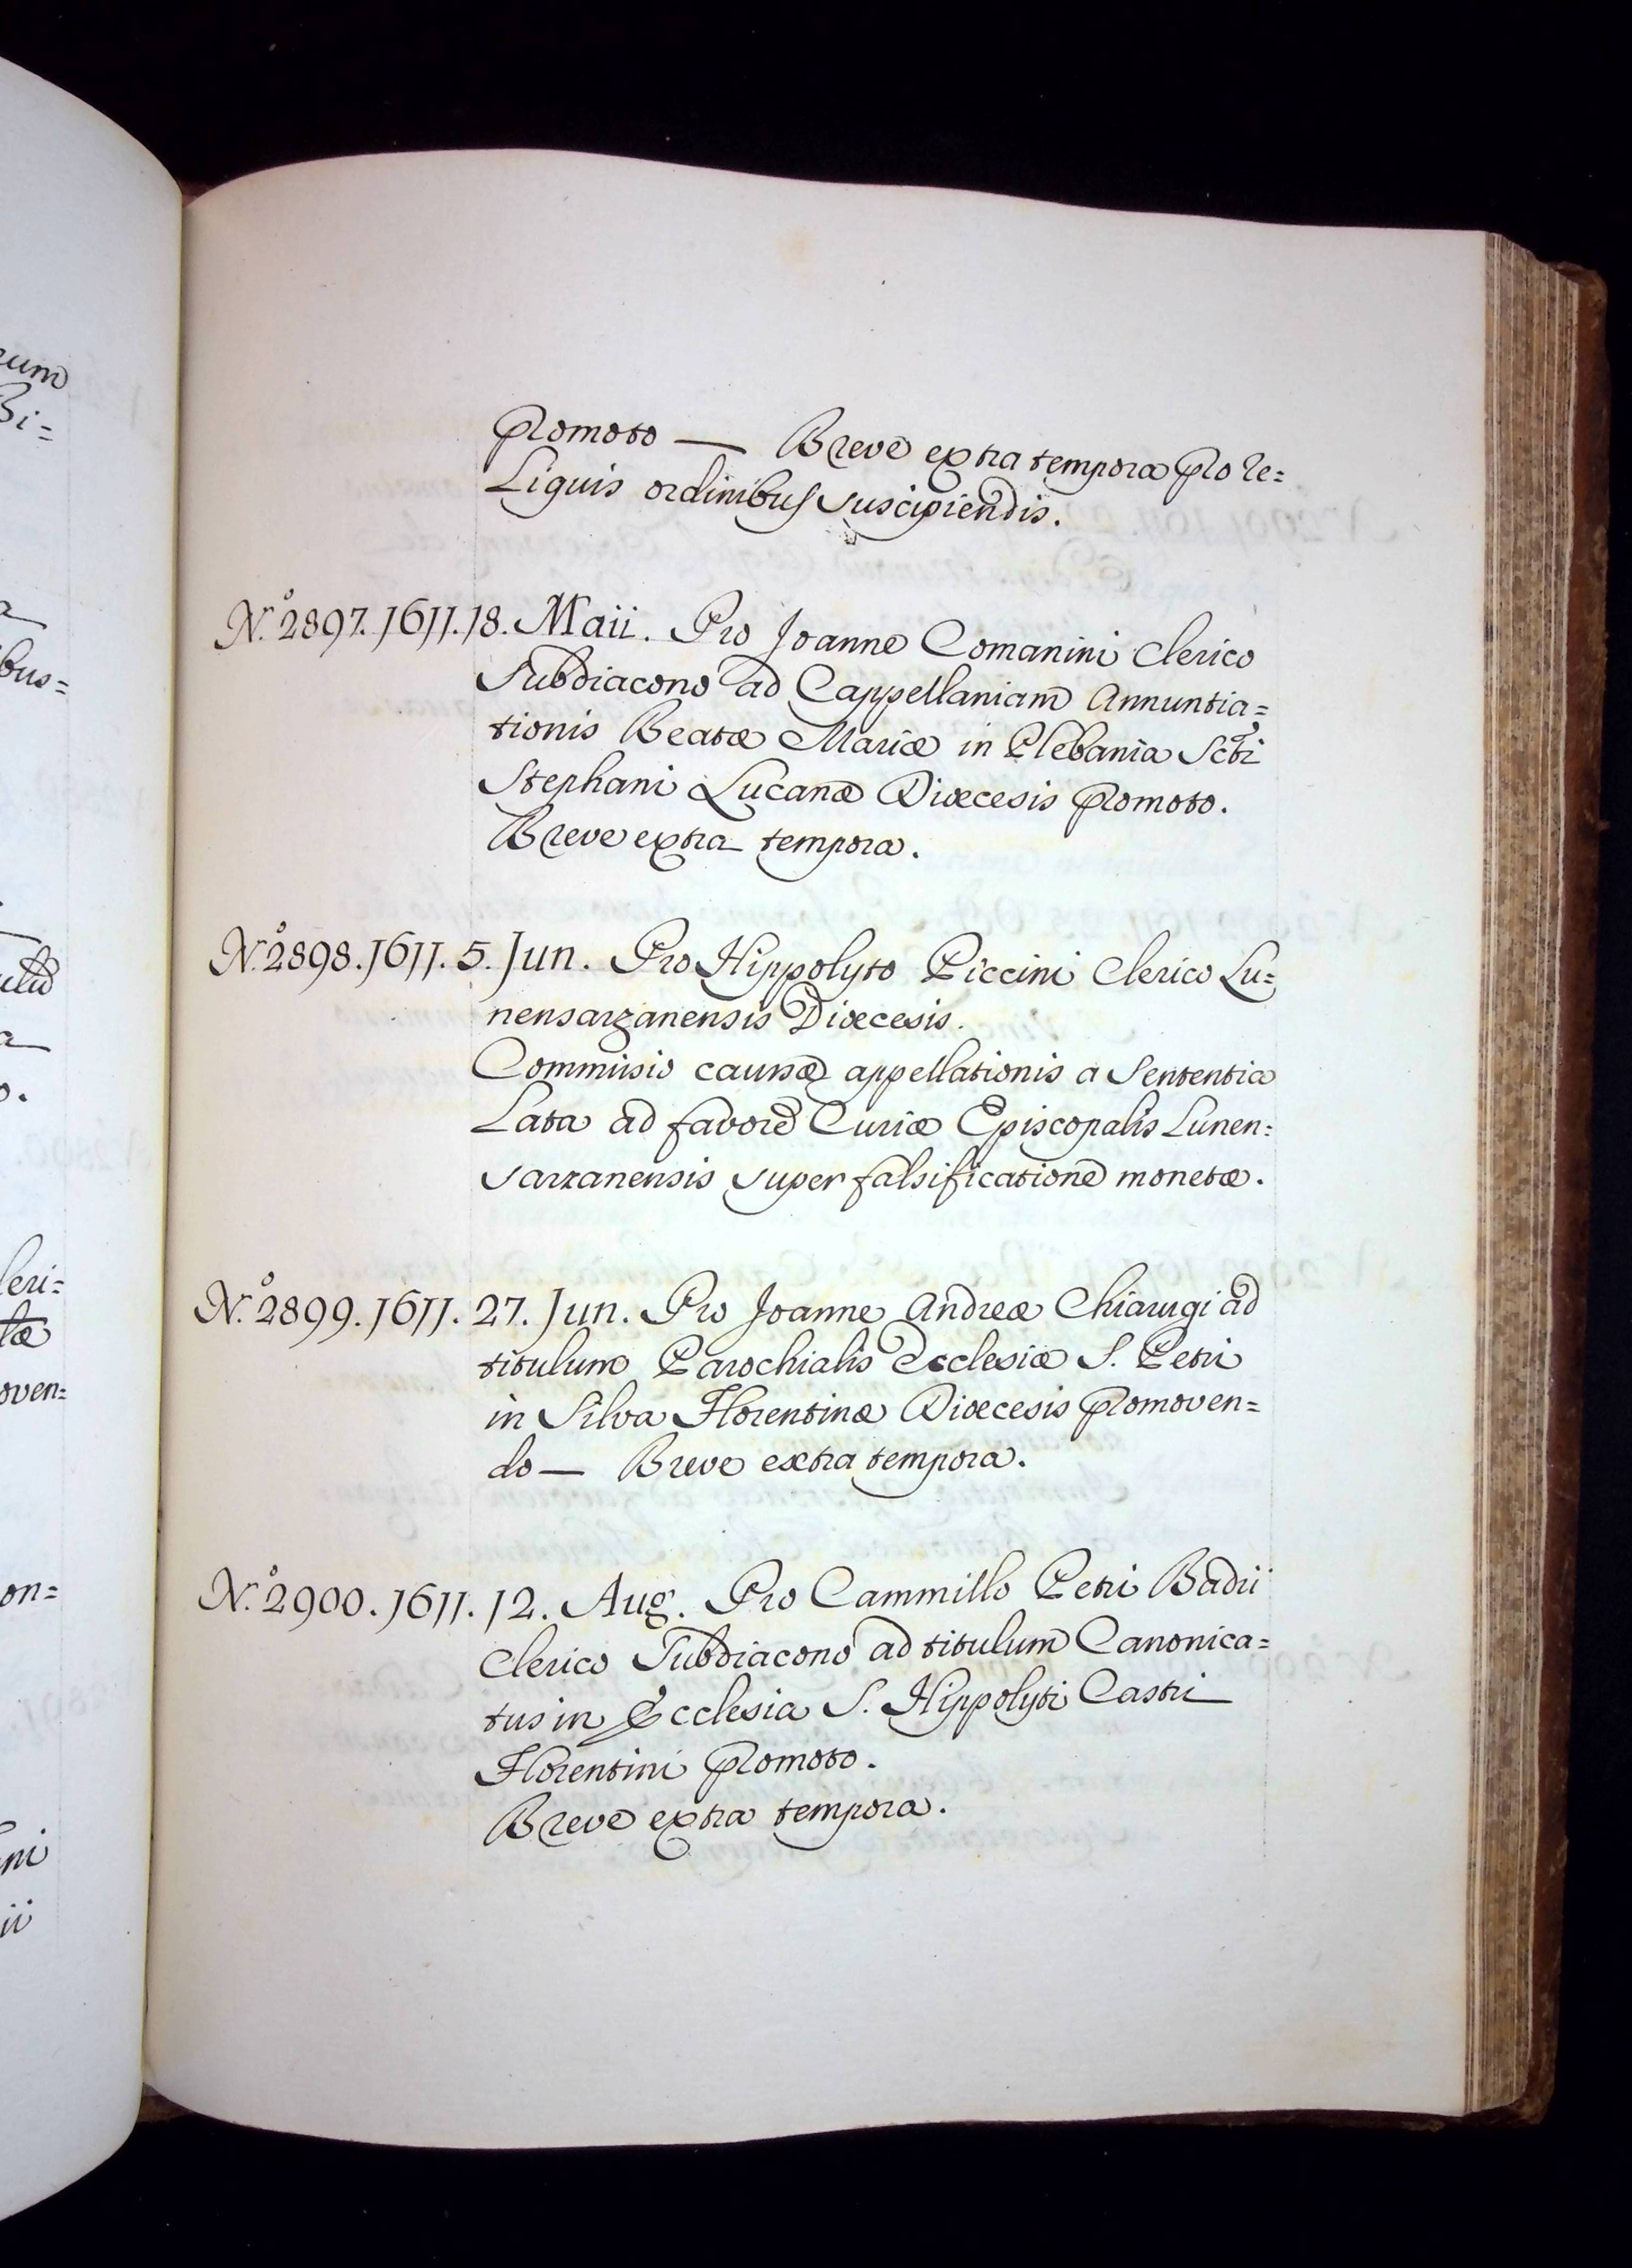 promoto — Breve extra tempora pro re=
liquis ordinibus suscipiendis.
N.º 2897. 1611. 18. Maii. Pro Joanne Comanini Clerico
Subdiacono ad Cappellaniam Annuntia=
tionis Beatæ Mariæ in Plebania Scti
Stephani Lucanæ Diœcesis promoto.
Breve extra tempora.
N.º 2898. 1611. 5. Jun. Pro Hippolyto Piccini Clerico Lu=
nensarzanensis Diœcesis.
Commissio causæ appellationis a Sententia
Lata ad favore Curiæ Episcopalis Lunen=
sarzanensis super falsificatione monetæ.
N.º 2899. 1611. 27. Jun. Pro Joanne Andrea Chiarugi ad
titulum Parochialis Ecclesiæ S. Petri
in Silva Florentinæ Diœcesis promoven=
do — Breve extra tempora.
N.º 2900. 1611. 12. Aug. Pro Cammillo Petri Badii
Clerico Subdiacono ad titulum Canonica=
tus in Ecclesia S. Hippolyti Castri
Florentini promoto.
Breve extra tempora.